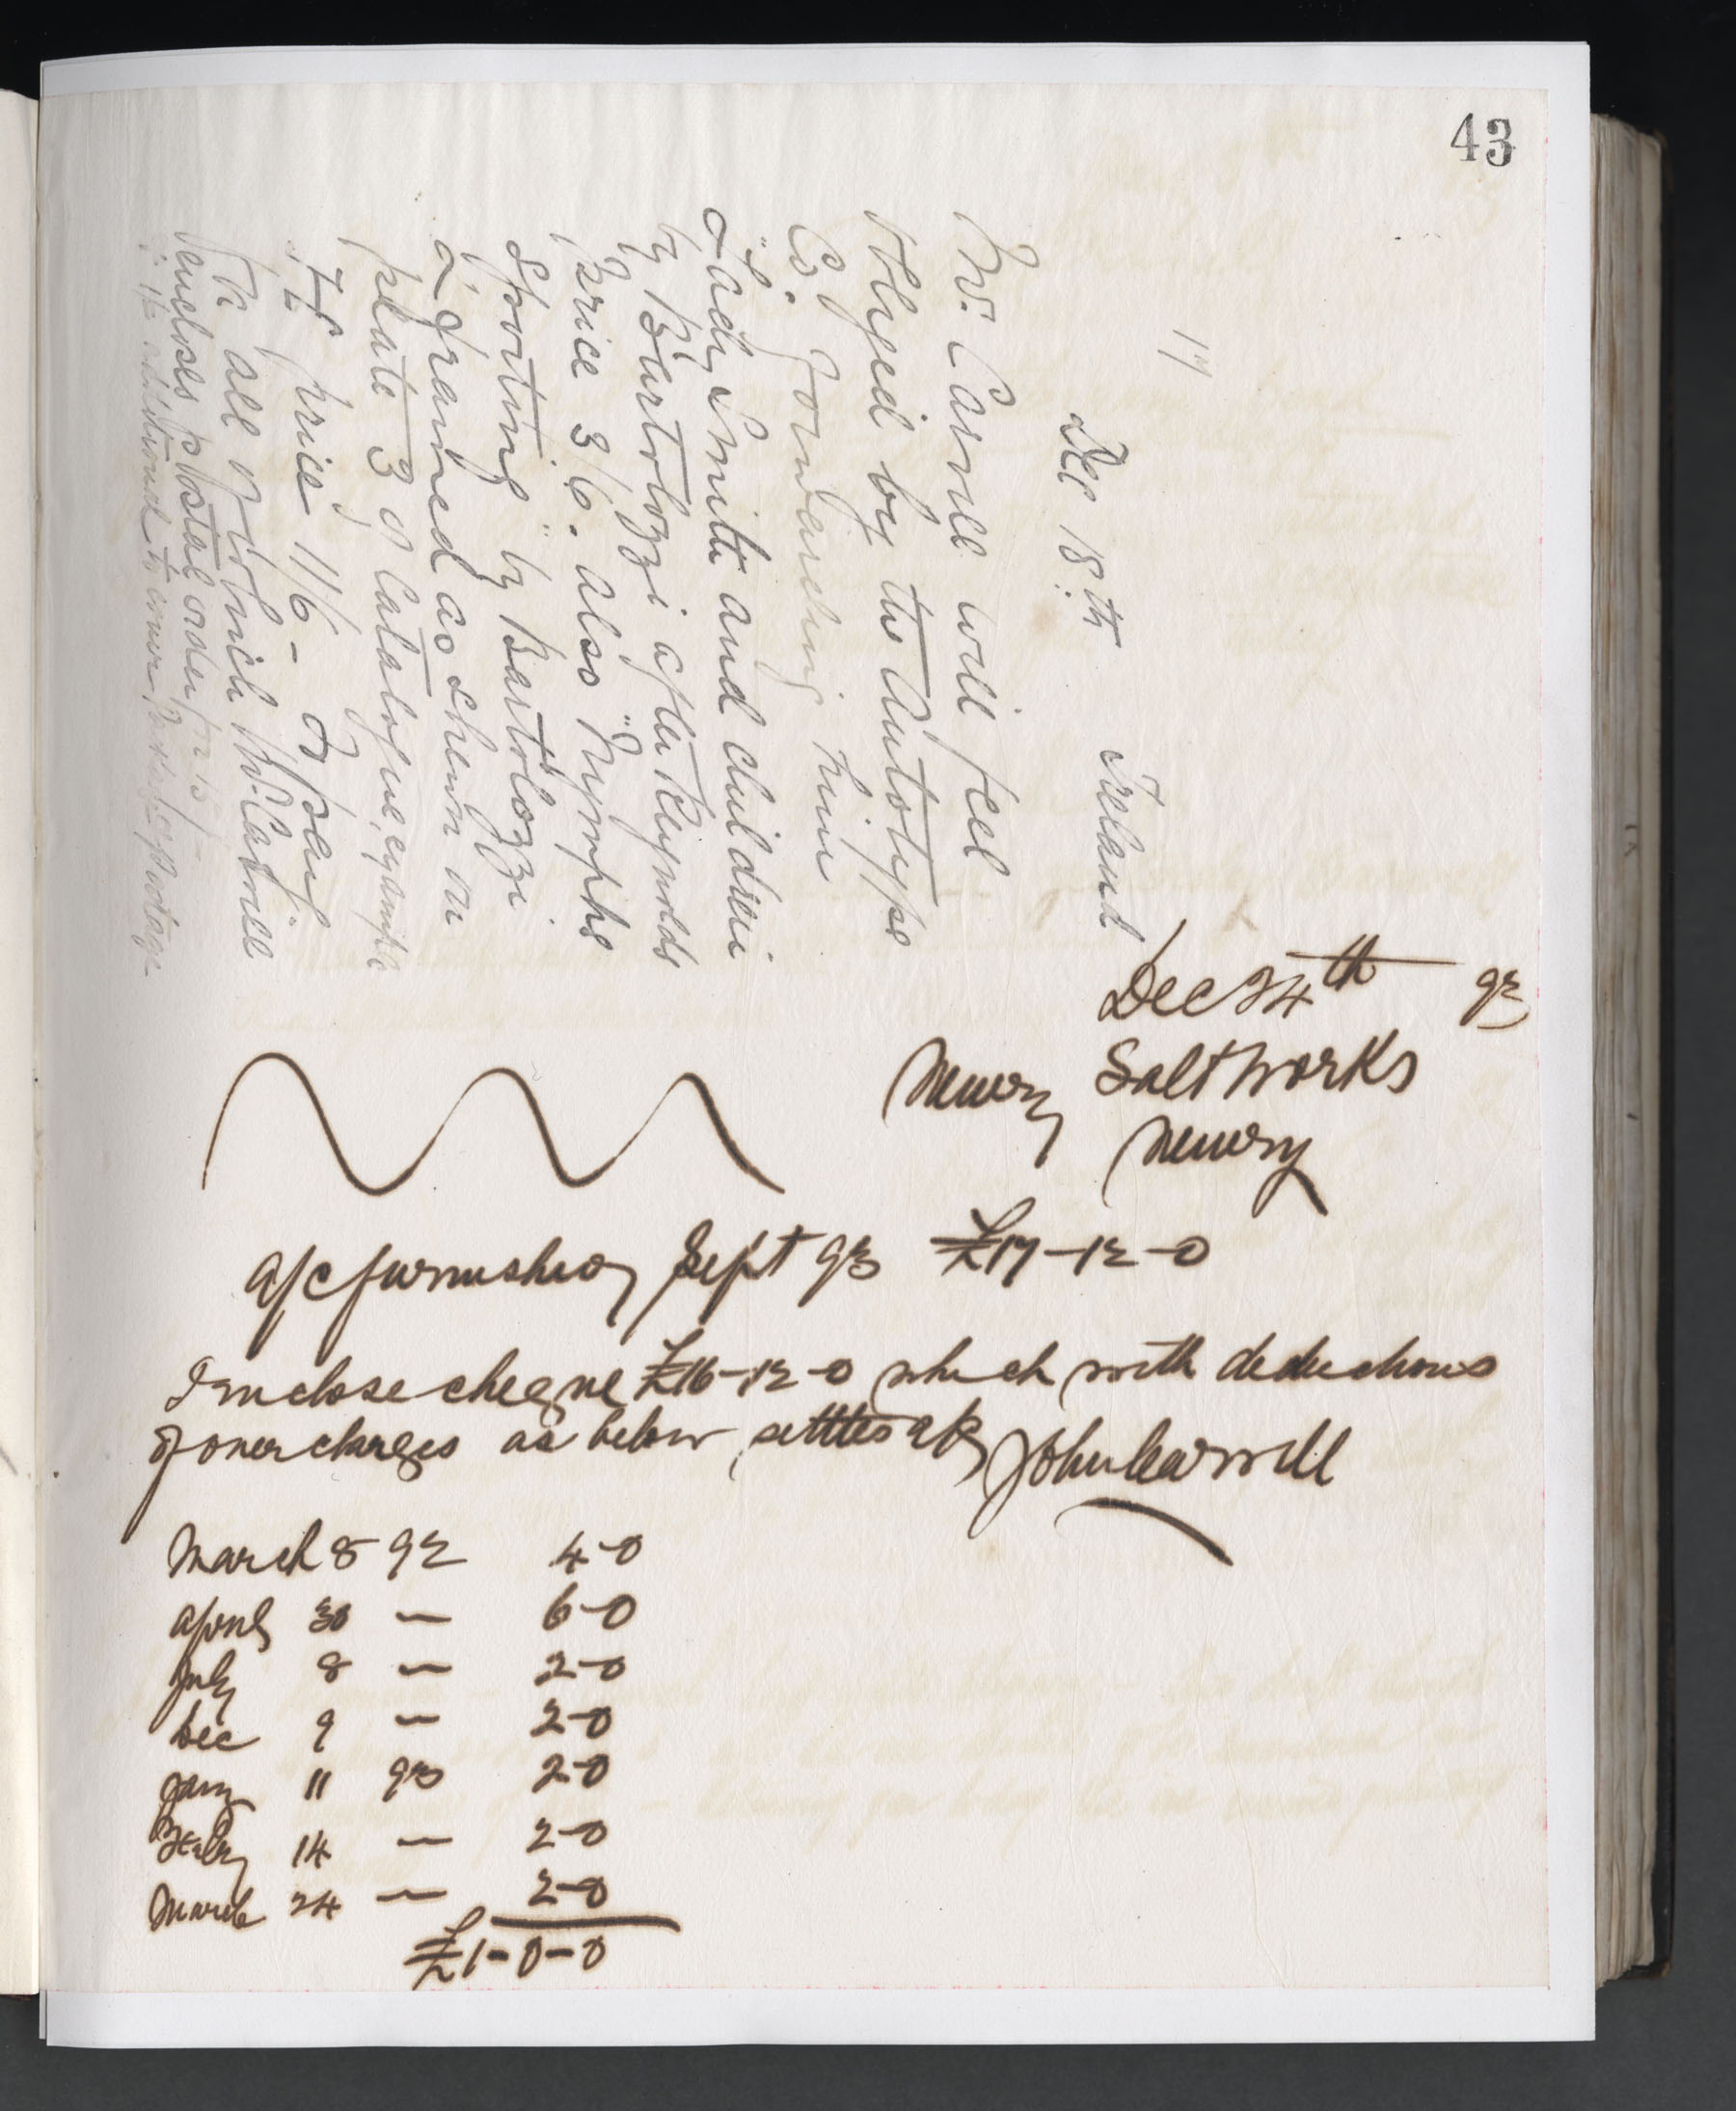 43
Dec 18th Ireland
Mr. Carvill will feel
obliged by the Autotype
Co. forwarding him
"L. Lady Smith and children
by Bartolozzi after Reynolds
price 3/6. also "Nymphs
Sporting" by Bartolozzi
framed as shewn on
plate 3 of Catalogue, example
price 11/6 -
all of which Mr. Carvill
encloses postal order for 15/-
additional to cover postage
Dec 24th 92
Newry Salt Works
Newry
a/c furnished Sept 93 £17-12-0
I enclose cheque £16-12-0 which with deductions
of overcharges as below settles a/c John Carvill
March 8 92 4-0
April 30 — 6-0
July 8 — 2-0
Dec 9 — 2-0
Jany 11 93 2-0
Feby 14 — 2-0
March 24 — 2-0
£1-0-0